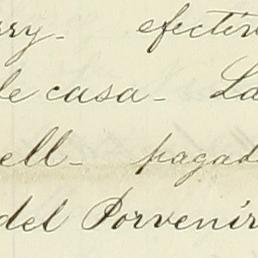 rry_ efectiv
le casa_ La
ell_ pagad
del Porvenir